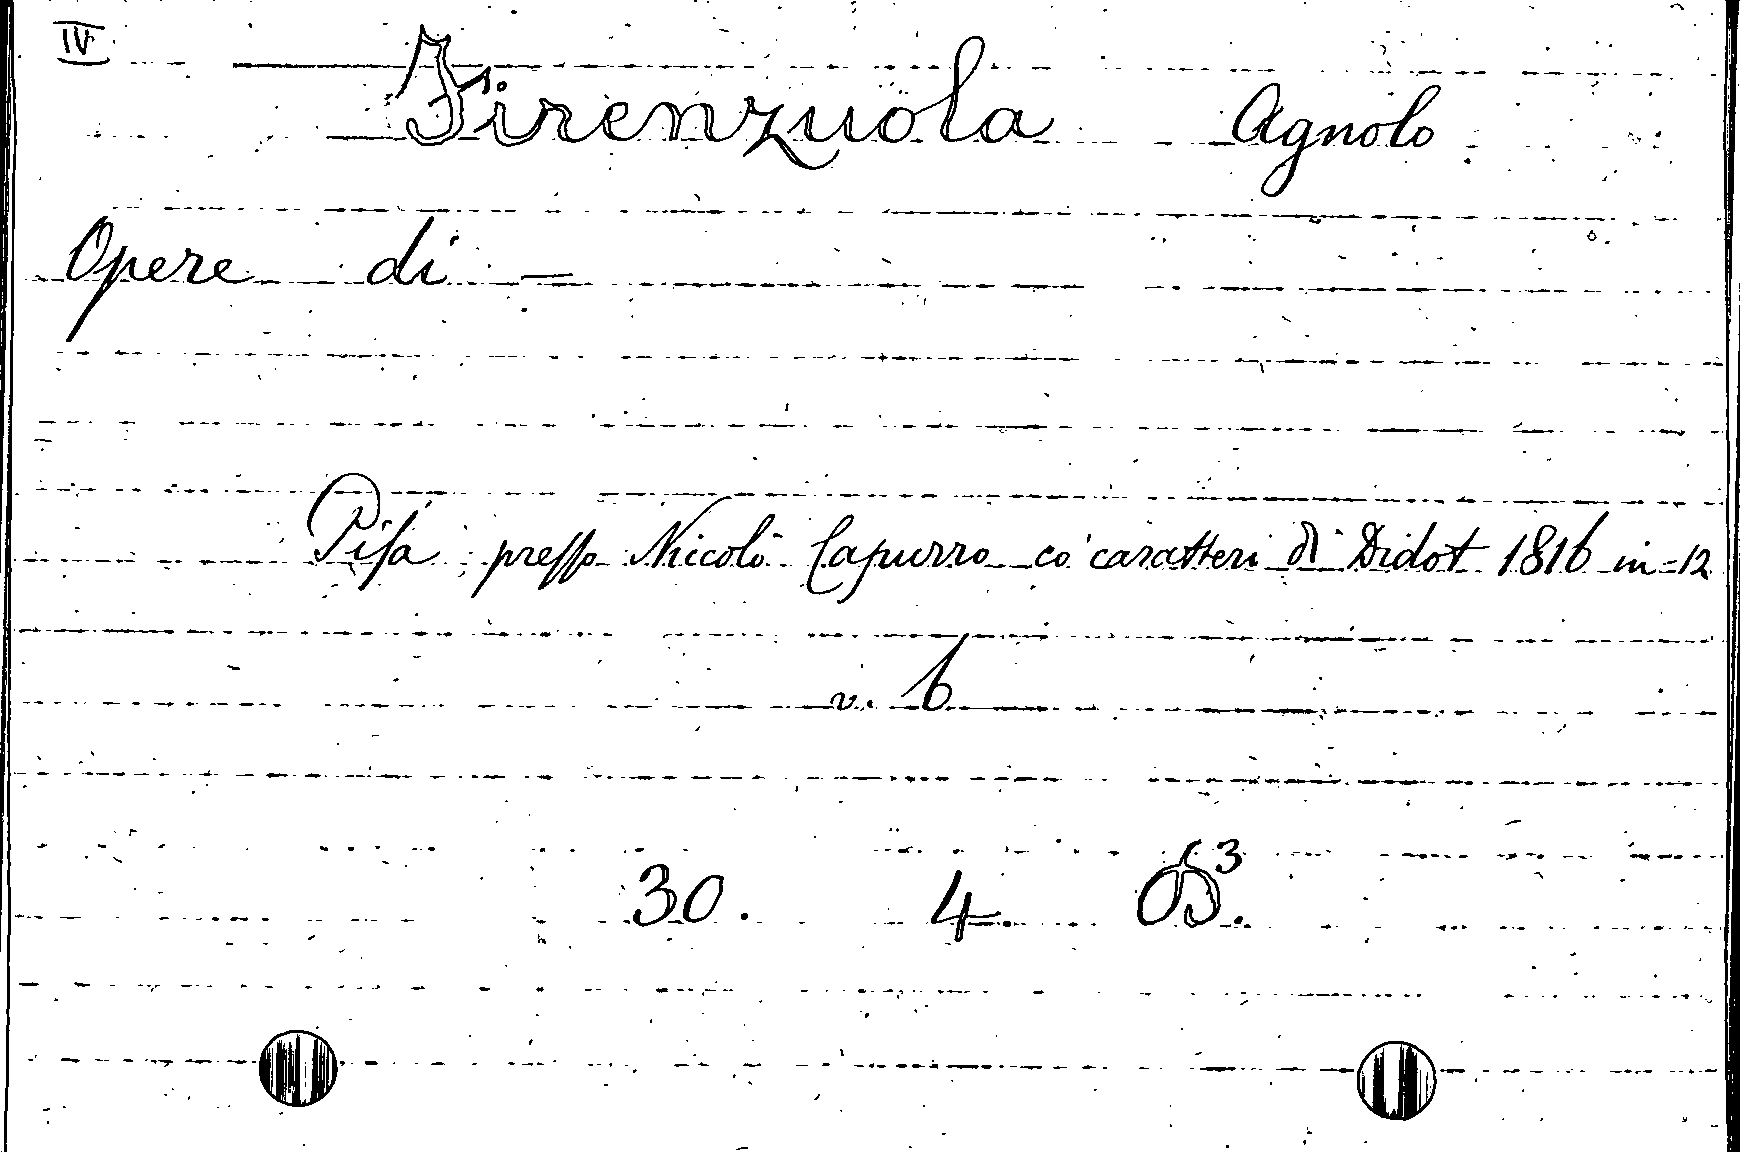 IV
Firenzuola Agnolo
Opere di =
Pisa presso Nicolò Capurro co' caratteri di Didot 1816 in-12
v. 6
30. 4. B³.